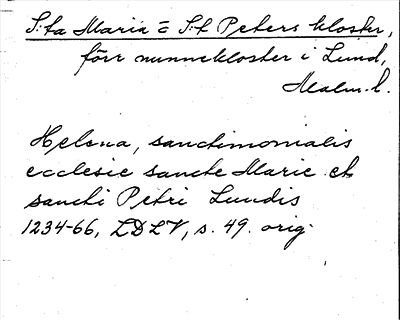 S:ta Maria = S:t Peters kloster,
förr nunnekloster i Lund,
Malm. l.
Helena, sanctimonialis
ecclesie sancte Marie et
sancti Petri Lundis
1234-66, LDLV, s. 49. orig.